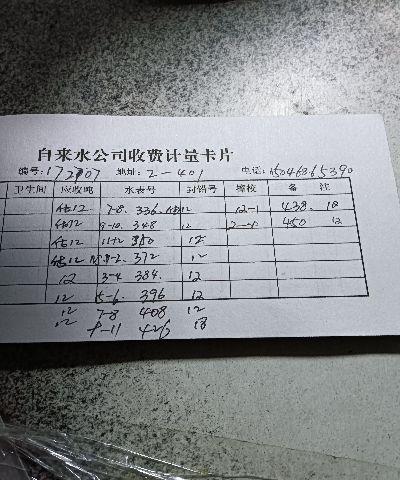 自来水公司收费计量卡片
编号:172707 地址:2-401 电话:15046365390
卫生间 应收吨 水表号 封铅号 标校 备 注
估12 7-8. 336. 估12 12-1 438. 12
估12 9-10. 348 12 2-4 450 12
估12 11+2 360 12
估12 1-2. 372 12
12 3-4 384. 12
12 5-6. 396 12
12 7-8 408 12
12 9-11 426 18